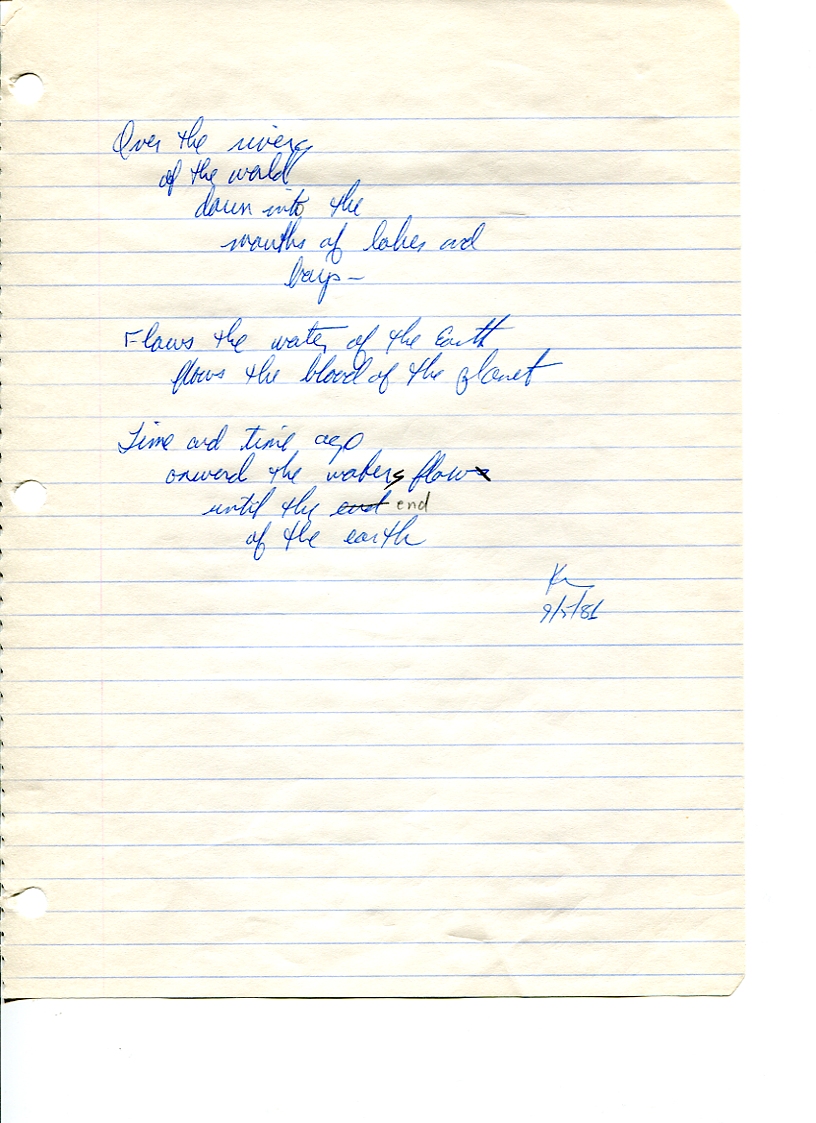 Over the rivers
of the world
down into the
mouths of lakes and
bays—
Flows the water of the Earth
flows the blood of the planet
Time and time ago
onward the waters flow
until the end end
of the earth
9/5/81